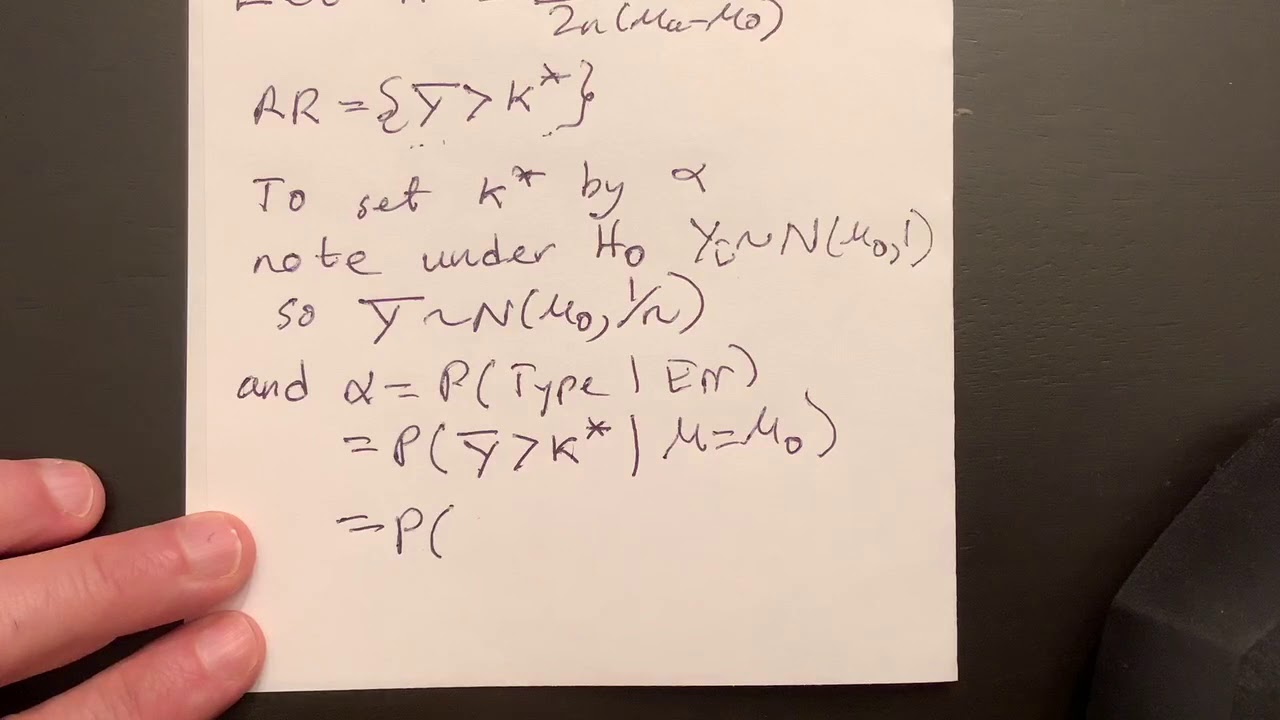 Let K* =
2n(μa-μ0)
RR = {Y̅ > K*}
To set K* by α
note under H0 Yi ~ N(μ0, 1)
so Y̅ ~ N(μ0, 1/n)
and α = P(Type I Err)
= P(Y̅ > K* | μ = μ0)
= P(